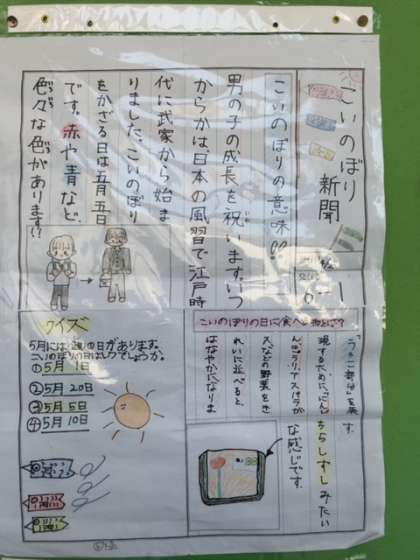 こいのぼり
新聞
こいのぼりの意味!!
男の子の成長を祝います。いつ
からかは日本の風習で江戸時
代に武家から始ま
りました。こいのぼり
をかざる日は五月五日
です。赤や青など、
色々な色があります!!
クイズ
5月には の日があります。
こいのぼりの日はいつでしょうか。
①5月 1日
②5月 20日
③5月 5日
④5月 10日
こいのぼりの日に食べ 物とは?
現するために、にんじ
ん、ゼラリ、アスパラが
スなどの野菜をき
れいに並べると
はなやかになりま
ちらしずしみたい
な感じです。